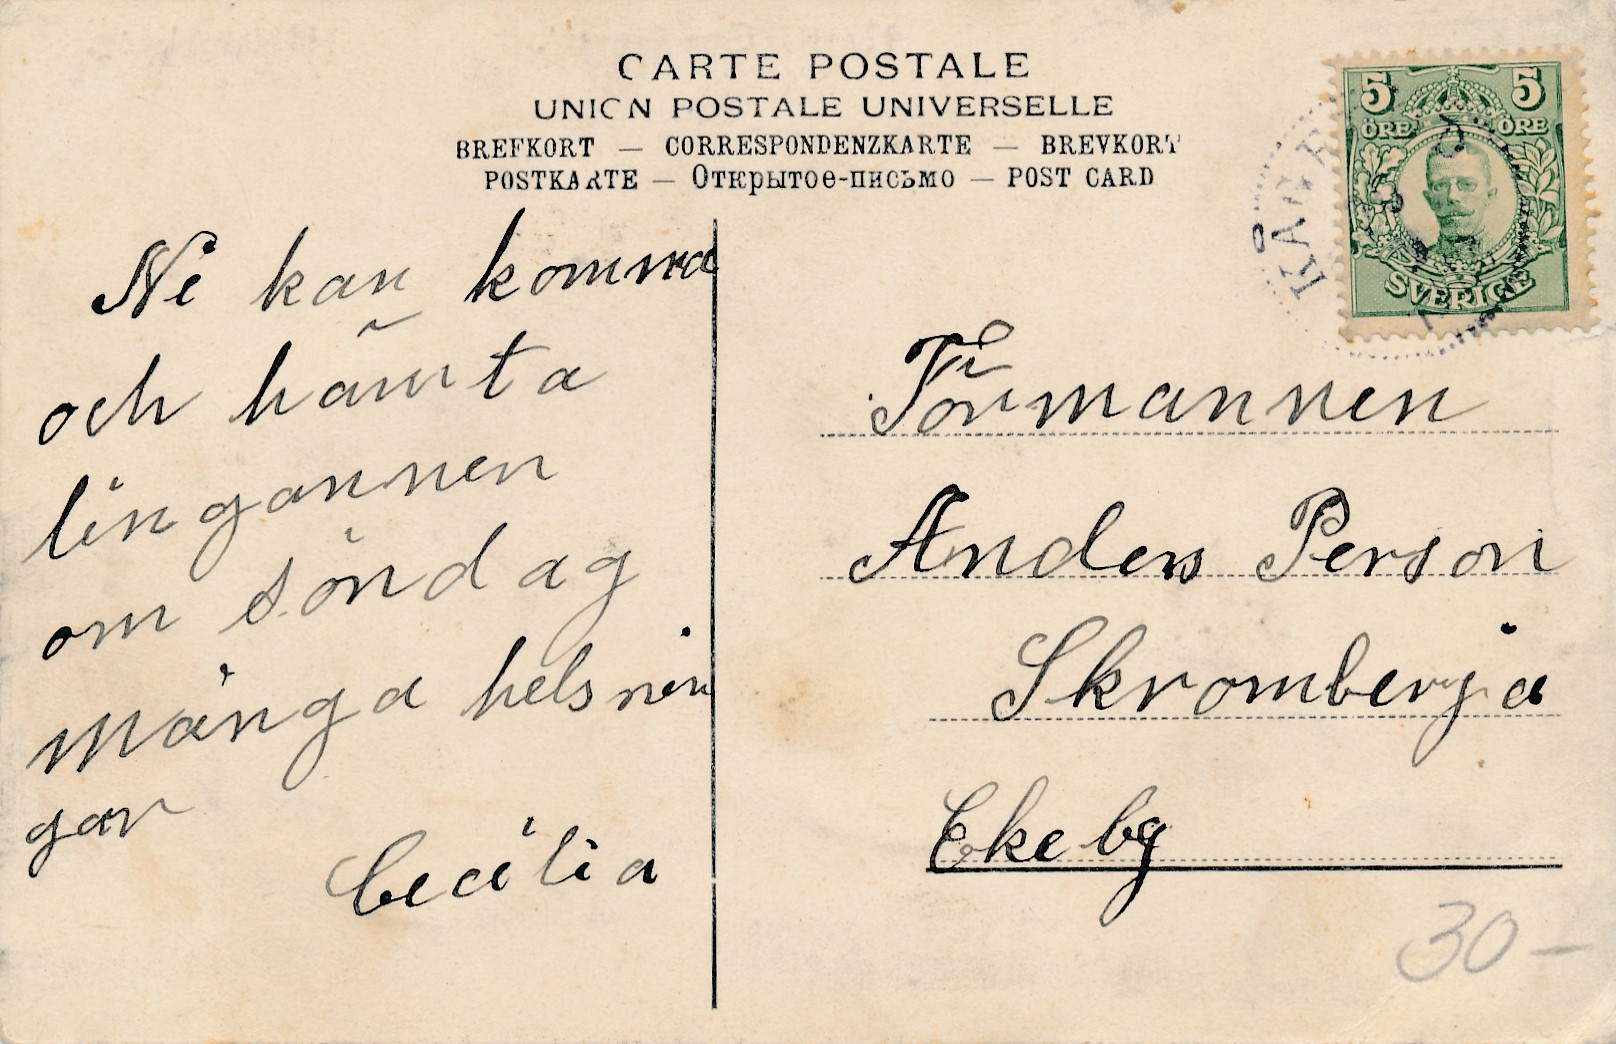 CARTE POSTALE
UNION POSTALE UNIVERSELLE
BREFKORT — CORRESPONDENZKARTE — BREVKORT
POSTKARTE — Открытое-письмо — POST CARD
5 5
ÖRE ÖRE
SVERIGE
KÅGE
Ni kan komma
och hämta
lingonnen
om söndag
många helsnin
gar
Cecilia
Förmannen
Anders Person
Skromberga
Ekeby
30-